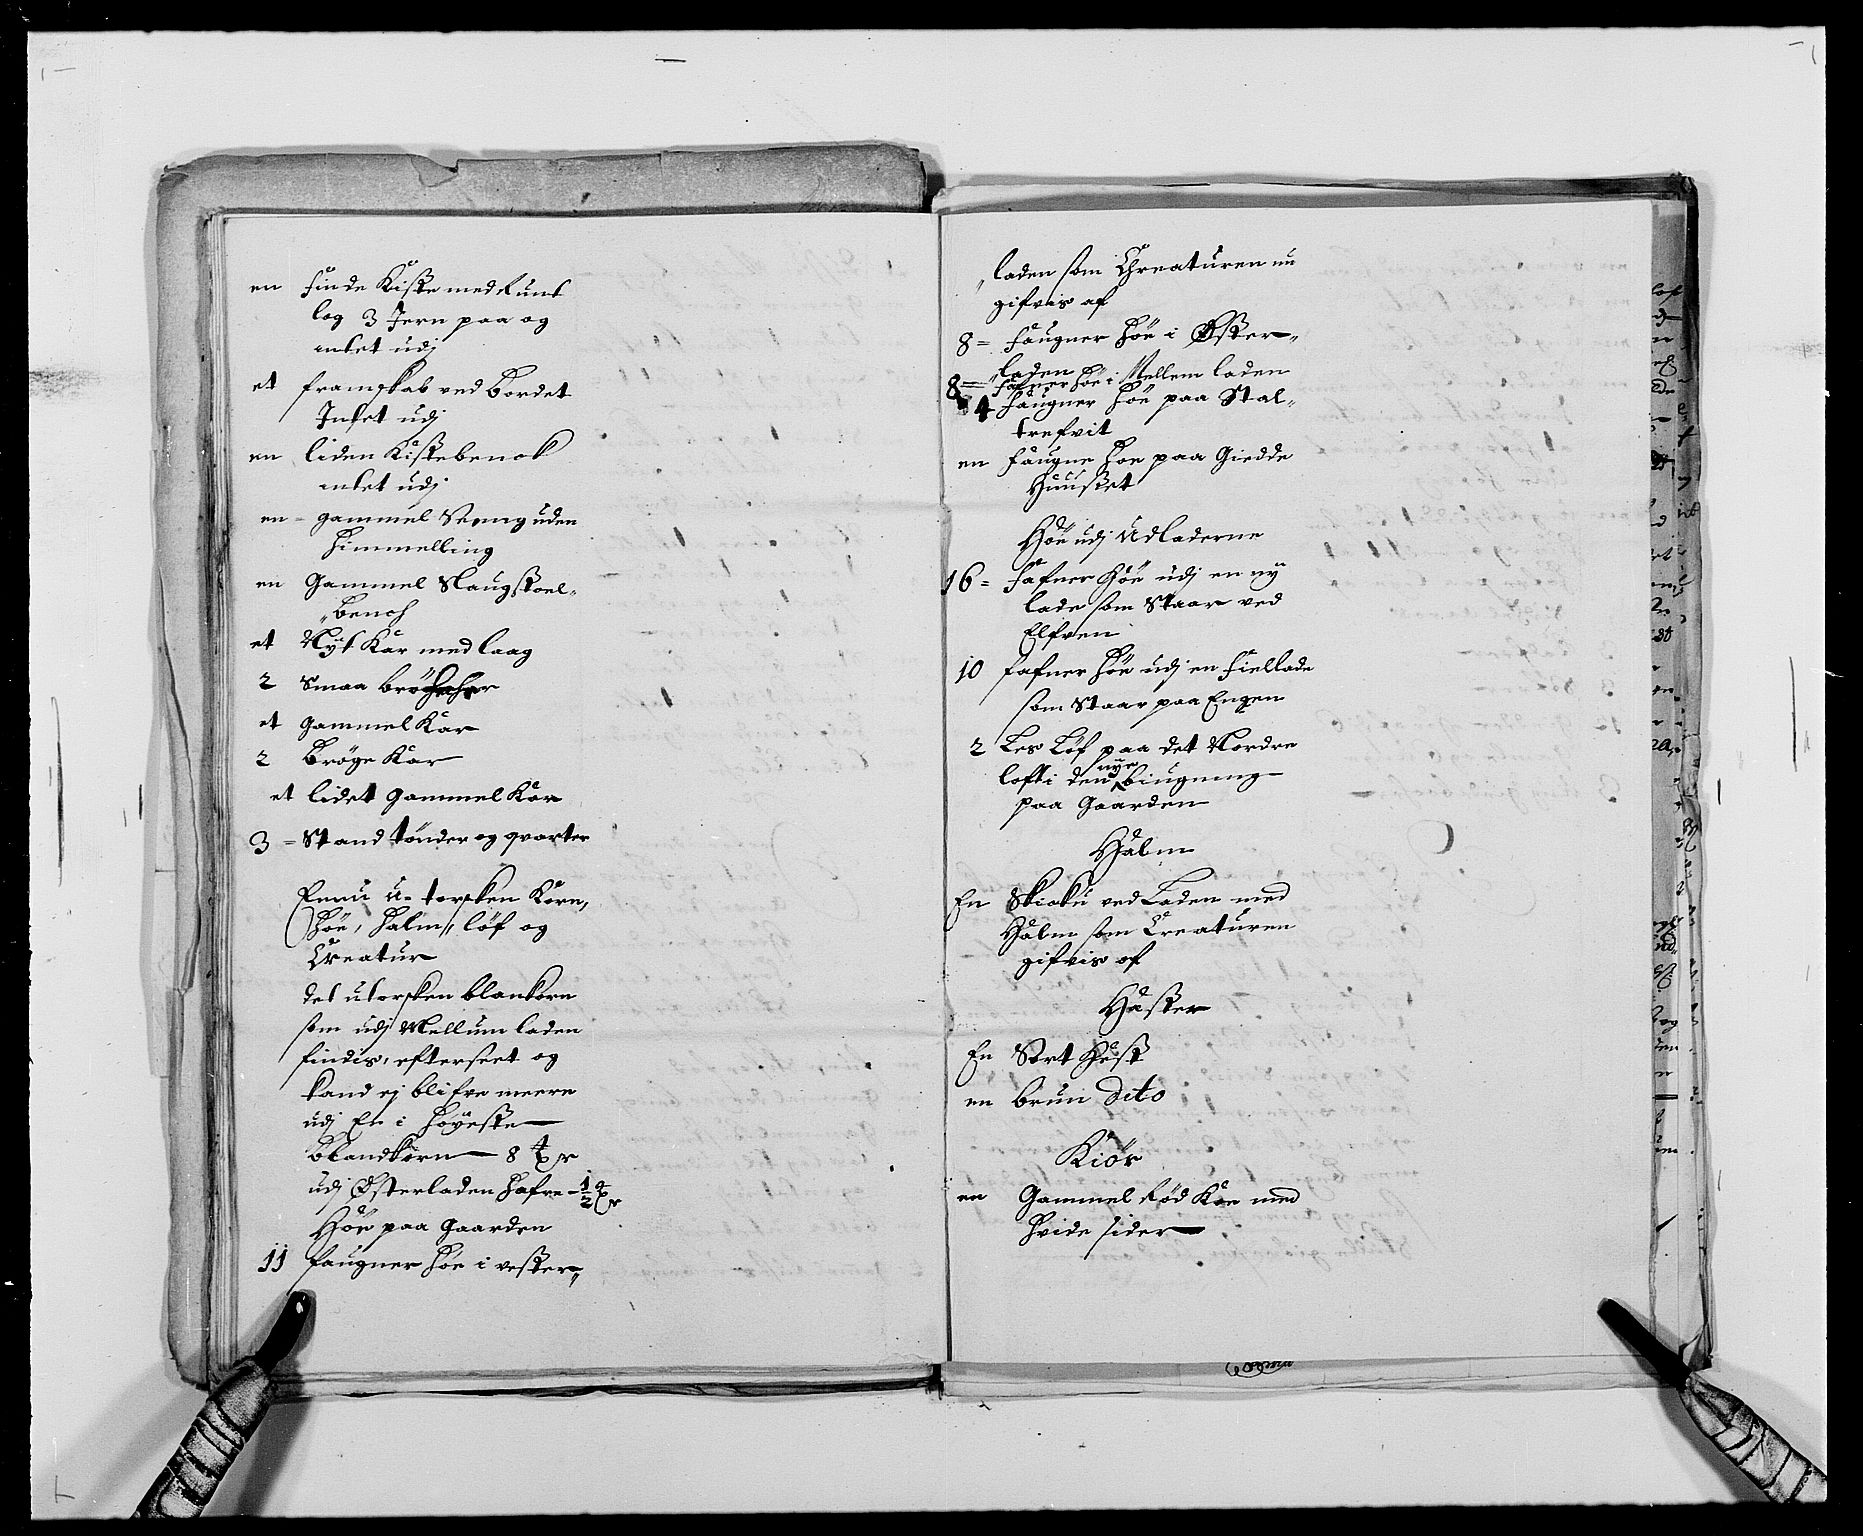 en finde Kiste med Runt
log 3 Jern paa og
intet udj
et framskab ved bordet
Intet udj
en liden Kistebenck
intet udj
en - gammel Seeng uden
himmelling
en Gammel Slaugstoel-
benck
et Nyt Kar med laag
2 Smaa
et gammel Kar
2 brøge Kar
et lidet gammel Kar
3 = Stand tønder og qvarter
Ennu u-torsken Korn,
høe, halm, løf og
Creatur
det utorsken blankorn
som udj Mellum laden
findis, efterseet og
kand ej blifve meere
udj En i høyeste
blandkorn - 8 tr
udj Østerladen hafre - 1/2 tr
Høe paa Gaarden
11 faugner høe i vester,,
,,laden som Chreaturen nu
gifvis af
8 = faugner høe i Øster,,
,,laden
8 = fafner høe i Mellem laden
4 faugner høe paa Stal-
trefvit
en faugne høe paa Giedde
Huuset
Høe udj Udladerne
16 = fafner høe udj en ny
lade som Staar ved
Elfven
10 fafner høe udj en fiellade
som Staar paa Engen
2 Les Løf paa det Nordre
loft i den nye biugning
paa Gaarden
Halm
En Skiøku ved Laden med
Halm som Creaturen
gifvis af
Hæster
En Sort Hest
en brun dito
Kiør
en Gammel Rød Koe med
hvide sider